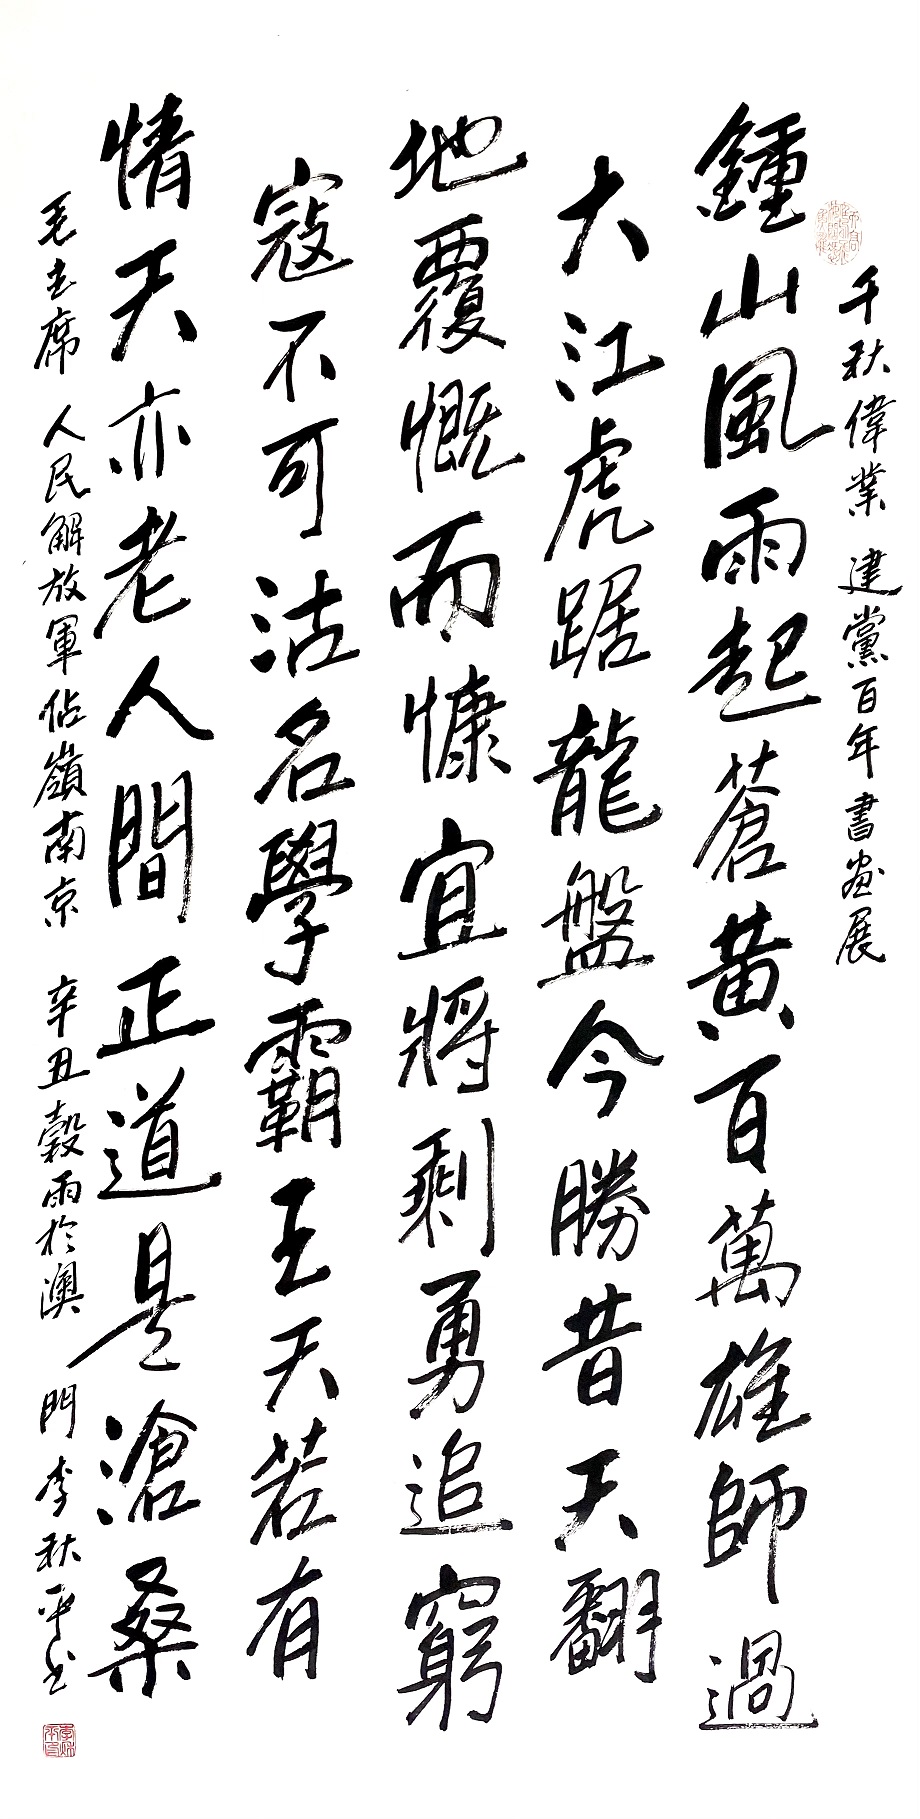 千秋偉業 建黨百年書画展
鍾山風雨起蒼黃百萬雄師過
大江虎踞龍盤今勝昔天翻
地覆慨而慷宜將剩勇追窮
寇不可沽名學霸王天若有
情天亦老人間正道是滄桑
毛主席 人民解放軍佔嶺南京 辛丑穀雨於澳門李秋平书